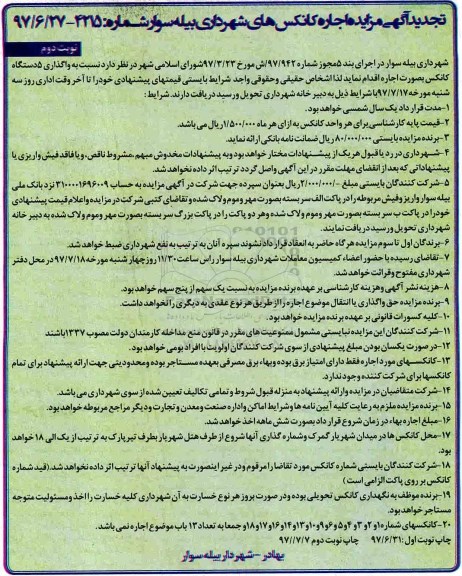 تجدید آگهی مزایده اجاره کانکس های شهرداری بیله سوار شماره: ۴۲۱۵-۹۷/۶/۲۷
نوبت دوم
شهرداری بیله سوار در اجرای بند ۵ مجوز شماره ۹۷/۹۴۲/ش مورخ ۹۷/۳/۲۳ شورای اسلامی شهر در نظر دارد نسبت به واگذاری ۵ دستگاه
کانکس بصورت اجاره اقدام نماید لذا اشخاص حقیقی و حقوقی واجد شرایط بایستی قیمتهای پیشنهادی خود را تا آخر وقت اداری روز سه
شنبه مورخه ۹۷/۷/۱۷ با شرایط ذیل به دبیر خانه شهرداری تحویل و رسید دریافت دارند. شرایط:
۱-مدت قرار داد یک سال شمسی خواهد بود.
۲-قیمت پایه کارشناسی برای هر واحد کانکس به ازای هر ماه ۱/۵۰۰/۰۰۰ ریال می باشد.
۳-برنده مزایده بایستی ۸۰/۰۰۰/۰۰۰ ریال ضمانت نامه بانکی ارائه نماید.
۴-شهرداری در رد یا قبول هر یک از پیشنهادات مختار خواهد بود و به پیشنهادات مخدوش مبهم، مشروط ناقص، و یا فاقد فیش واریزی یا
پیشنهاداتی که بعد از انقضای مهلت مقرر در این آگهی واصل گردد ترتیب اثر داده نخواهد شد.
۵-شرکت کنندگان بایستی مبلغ ۲/۰۰۰/۰۰۰ ریال بعنوان سپرده جهت شرکت در آگهی مزایده به حساب ۳۱۰۰۰۰۱۶۹۶۰۰۹ نزد بانک ملی
بیله سوار واریز و فیش مربوطه را در پاکت الف سر بسته بصورت مهر و موم و لاک شده و تقاضای کتبی شرکت در مزایده و اعلام قیمت پیشنهادی
خود را در پاکت ب سر بسته بصورت مهر و موم و لاک شده و هر دو پاکت را در پاکت بزرگ سر بسته بصورت مهر و موم و لاک شده به دبیر خانه
شهرداری تحویل و رسید دریافت نمایند.
۶-برندگان اول تا سوم مزایده هر گاه حاضر به انعقاد قرار داد نشوند سپرده آنان به ترتیب به نفع شهرداری ضبط خواهد شد.
۷-تقاضای رسیده با حضور اعضاء کمیسیون معاملات شهرداری بیله سوار راس ساعت ۱۱/۳۰ روز چهار شنبه مورخه ۹۷/۷/۱۸ در محل دفتر
شهرداری مفتوح و قرائت خواهد شد.
۸-هزینه نشر آگهی و هزینه کارشناسی بر عهده برنده مزایده به نسبت یک سهم از پنج سهم خواهد بود.
۹-برنده مزایده حق واگذاری یا انتقال موضوع اجاره را از طریق هر نوع عقدی به دیگری را نخواهد داشت.
۱۰-کلیه کسورات قانونی بر عهده برنده مزایده خواهد بود.
۱۱-شرکت کنندگان این مزایده نبایستی مشمول ممنوعیت های مقرر در قانون منع مداخله کارمندان دولت مصوب ۱۳۳۷ باشند
۱۲-در صورت یکسان بودن مبلغ پیشنهادی از سوی شرکت کنندگان اولویت با افراد بومی خواهد بود.
۱۳-کانکسهای مورد اجاره فقط دارای امتیاز برق بوده و بهاء برق مصرفی بعهده مستاجر بوده و محدودیتی جهت ارائه پیشنهاد برای تمام
کانکسها برای شرکت کننده وجود ندارد.
۱۴-شرکت متقاضیان در مزایده و ارائه پیشنهاد به منزله قبول شروط و تمامی تکالیف تعیین شده از سوی شهرداری می باشد.
۱۵-برنده مزایده ملزم به رعایت کلیه آیین نامه ها و شرایط اماکن و اداره صنعت و معدن و تجارت و دیگر مراجع مربوطه خواهد بود.
۱۶-مبلغ اجاره بهاء در زمان شروع قرار داد بصورت شش ماهه اخذ خواهد شد.
۱۷-محل کانکس ها در میدان شهریار گمرک و شماره گذاری آنها شروع از طرف هتل شهریار بطرف تیر پارک به ترتیب از یک الی ۱۸ خواهد
بود.
۱۸-شرکت کنندگان بایستی شماره کانکس مورد تقاضا را مرقوم و در غیر اینصورت به پیشنهاد آنها ترتیب اثر داده نخواهد شد. (قید شماره
کانکس بر روی پاکت الزامی است)
۱۹-برنده موظف به نگهداری کانکس تحویلی بوده و در صورت بروز هر نوع خسارت به آن شهرداری کلیه خسارت را اخذ و مسئولیت متوجه
مستاجر خواهد بود.
۲۰-کانکسهای شماره ۱ و ۲ و ۳ و ۴ و ۵ و ۶ و ۹ و ۱۰ و ۱۳ و ۱۴ و ۱۶ و ۱۷ و ۱۸ و جمعا به تعداد ۱۳ باب موضوع اجاره نمی باشد.
چاپ نوبت اول: ۹۷/۶/۳۱ چاپ نوبت دوم ۹۷/۷/۷
بهادر - شهردار بیله سوار